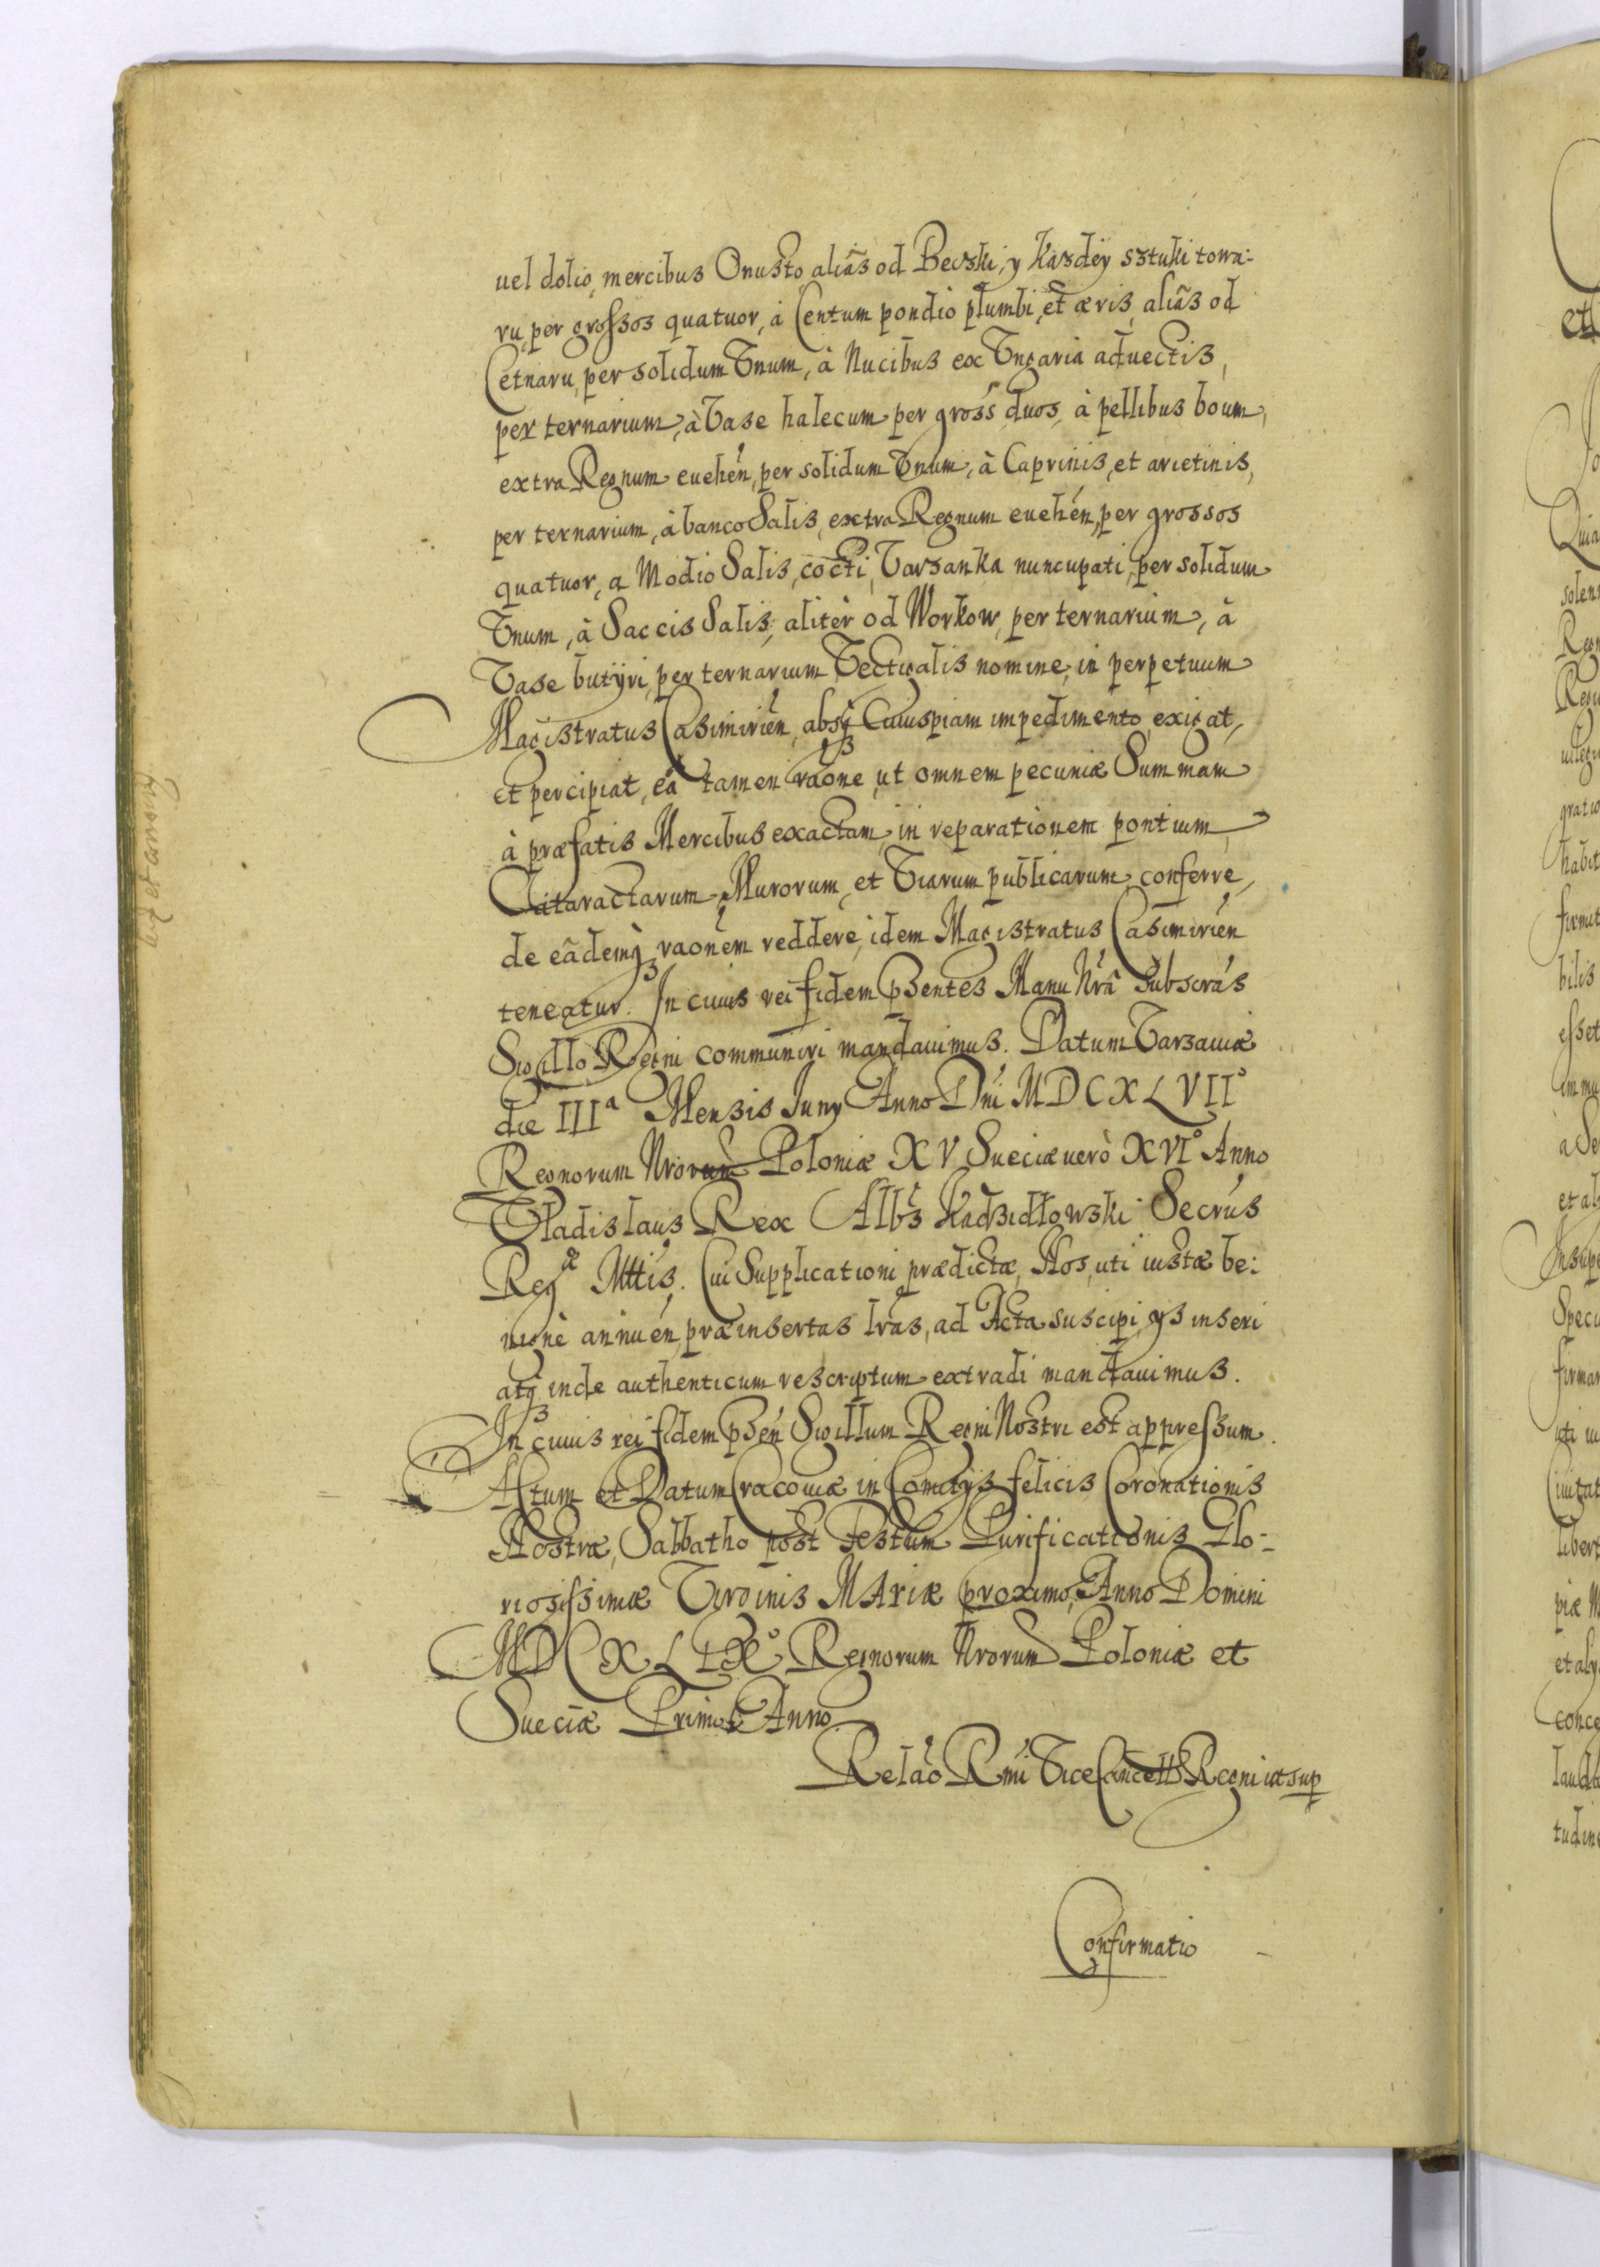 uel dolio, mercibus Onusto, aliâs od Beczki, y Kasdÿ sztuki towa:
ru, per grossos quatuor, à Centum pondiò plumbi, et æris, aliâs od
Cetnaru, per solidum Vnum, à Nucibus ex Vngaria aduectis,
per ternarium, à Vase halecum per gross duos, à pellibus boum,
extra Regnum euehén, per solidum Vnum, à Caprinis, et arietinis,
per ternarium, à banco Salis, extra Regnum euehén, per grossos
quatuor, a Modio Salis, cocti, Varzanka nuncupati, per solidum
Vnum, à Saccis Salis, alitèr od Workow, per ternarium, à
Vase butÿri, per ternarium Vectigalis nomine, in perpetuum
Magistratus Casimirien, absq Cuiuspiam impedimento, exigat,
et percipiat, eâ tamen raõne, ut omnem pecuniæ Summam
à præfatis Mercibus exactam, in reparationem pontium,
Cataractarum, Murorum, et Viarum publicarum, conferre,
de eâdemq raõnem reddere, idem Magistratus Casimirién
teneatur. In cuius rei fidem pzentes Manu Nrâ Subscrás
Sigillo Regni communiri mandauimus. Datum Varsauiæ
die IIIa Mensis Iuny Anno Dni MDCXLVIIº
Regnorum Nrorum Poloniæ XV Sueciæ uerò XVIº Anno
Vladislaus Rex Albs Kadzidłowski Secrús
Regæ Mttis. Cui Supplicationi prædictæ, Nos, uti iustæ be:
nignè annuén, præinsertas lrãs, ad Acta suscipi, ys inseri
atq inde authenticum rescriptum extradi mandauimus.
In cuius rei fidem pzén Sigillum Regni Nostri est appressum.
Actum et Datum Cracouiæ in Comitijs felicis Coronationis
Nostræ, Sabbatho post Festum Purificationis Glo:
riosissimæ Virginis MAriæ proximo, Anno Domini
MDCXLIXº Regnorum Nrorum Poloniæ et
Sueciæ Primo Anno
Relaõ Rmi Vice Cancell Regni ut sup
Confirmatio